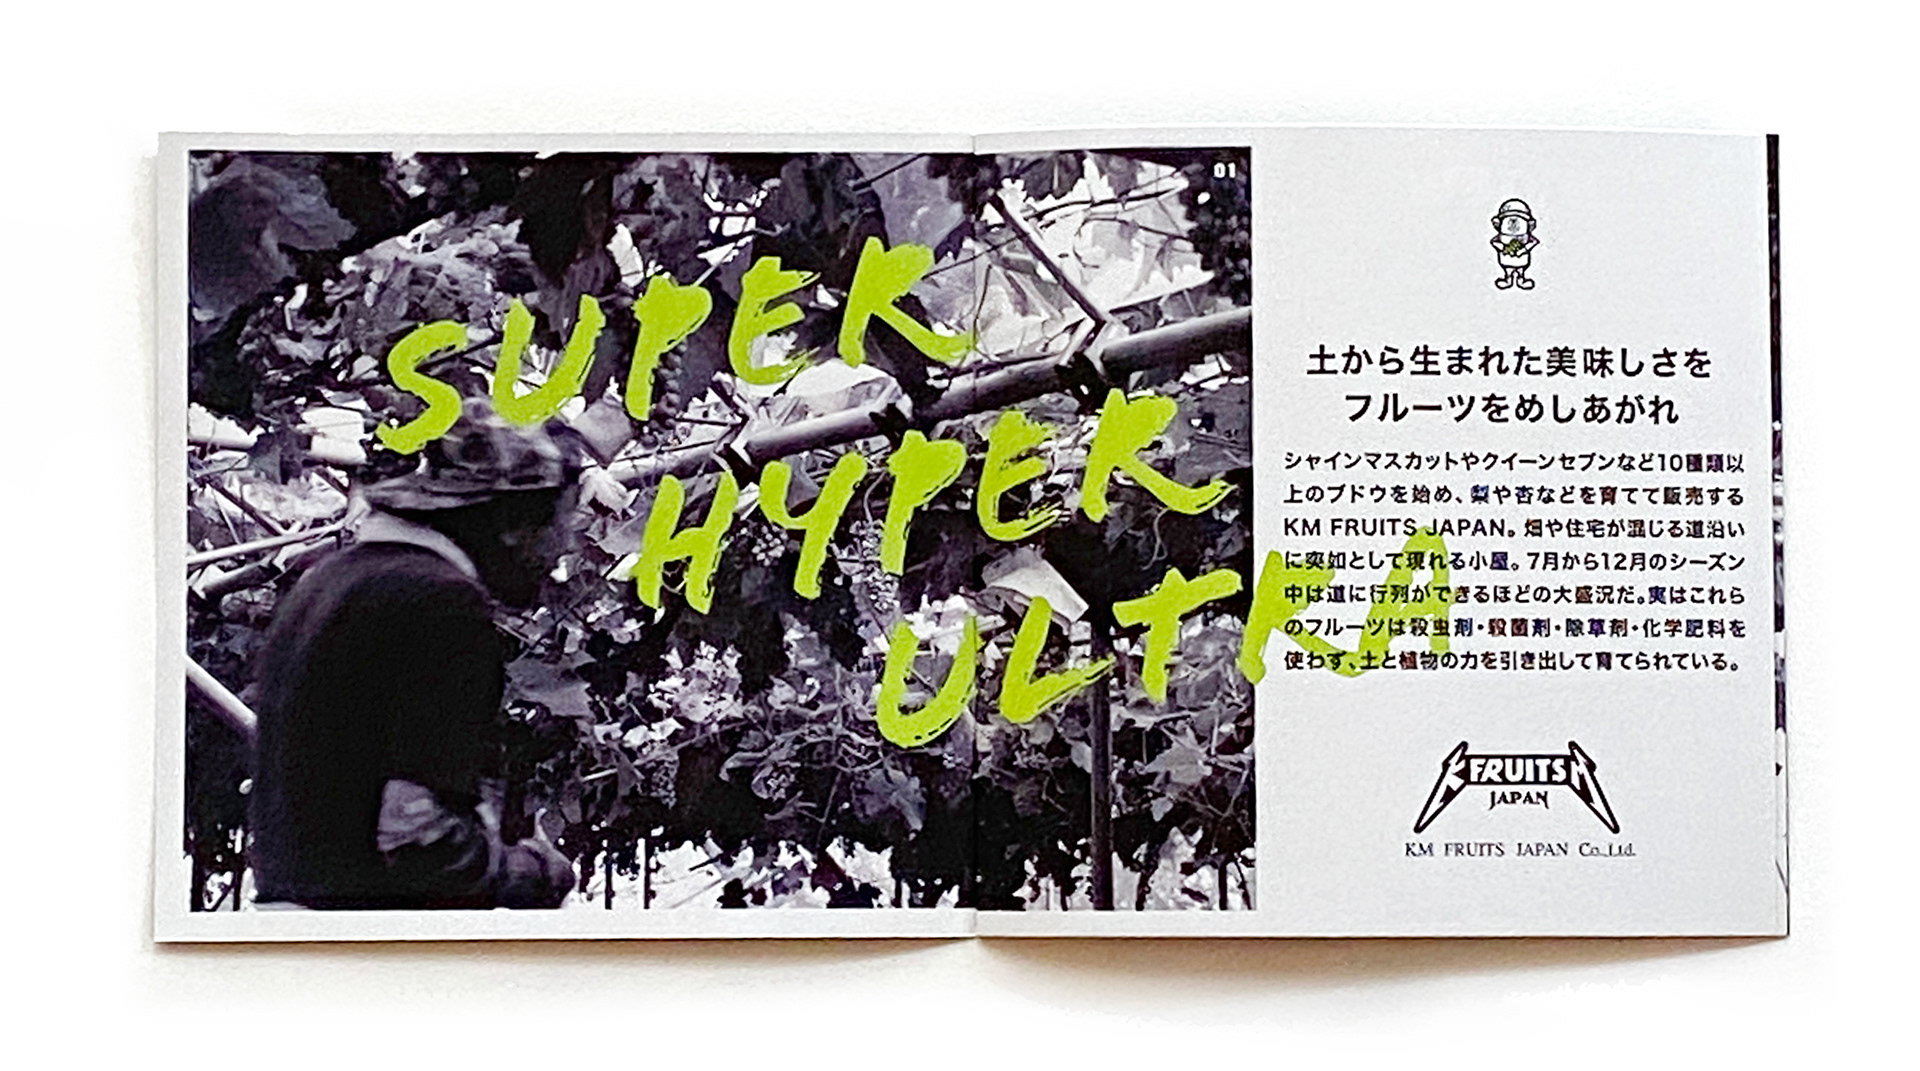 SUPER
HYPER
ULTRA
01
土から生まれた美味しさを
フルーツをめしあがれ
シャインマスカットやクイーンセブンなど10種類以
上のブドウを始め、梨や杏などを育てて販売する
KM FRUITS JAPAN。畑や住宅が混じる道沿い
に突如として現れる小屋。7月から12月のシーズン
中は道に行列ができるほどの大盛況だ。実はこれら
のフルーツは殺虫剤・殺菌剤・除草剤・化学肥料を
使わず、土と植物の力を引き出して育てられている。
K FRUITS M
JAPAN
KM FRUITS JAPAN Co.,Ltd.